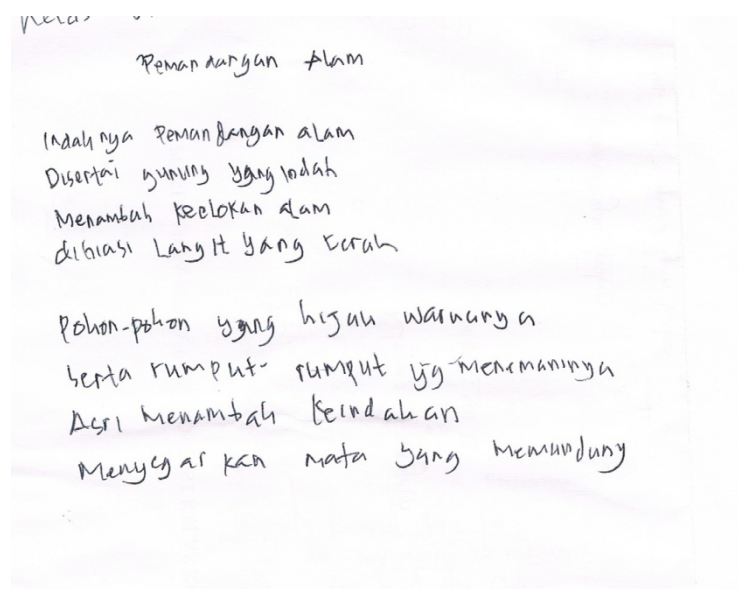 Kelas
Pemandangan Alam
Indahnya Pemandangan alam
Disertai gunung yang indah
Menambah keelokan alam
dihiasi Langit yang cerah
Pohon-pohon yang hijau warnanya
serta rumput-rumput yg menemaninya
Asri Menambah keindahan
Menyegarkan mata yang Memandang